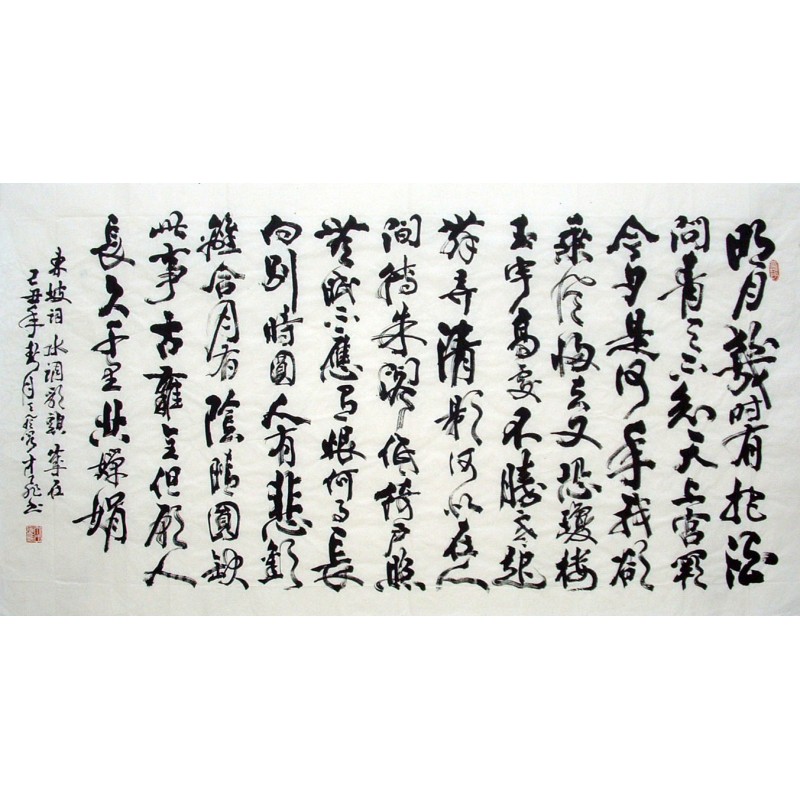 明月幾時有把酒
問青天不知天上宮闕
今夕是何年我欲
乘風歸去又恐瓊樓
玉宇高處不勝寒起
舞弄清影何似在人
間轉朱閣低綺戶照
無眠不應有恨何事長
向別時圓人有悲歡
離合月有陰晴圓缺
此事古難全但願人
長久千里共嬋娟
東坡詞水調歌頭歲在
己丑年